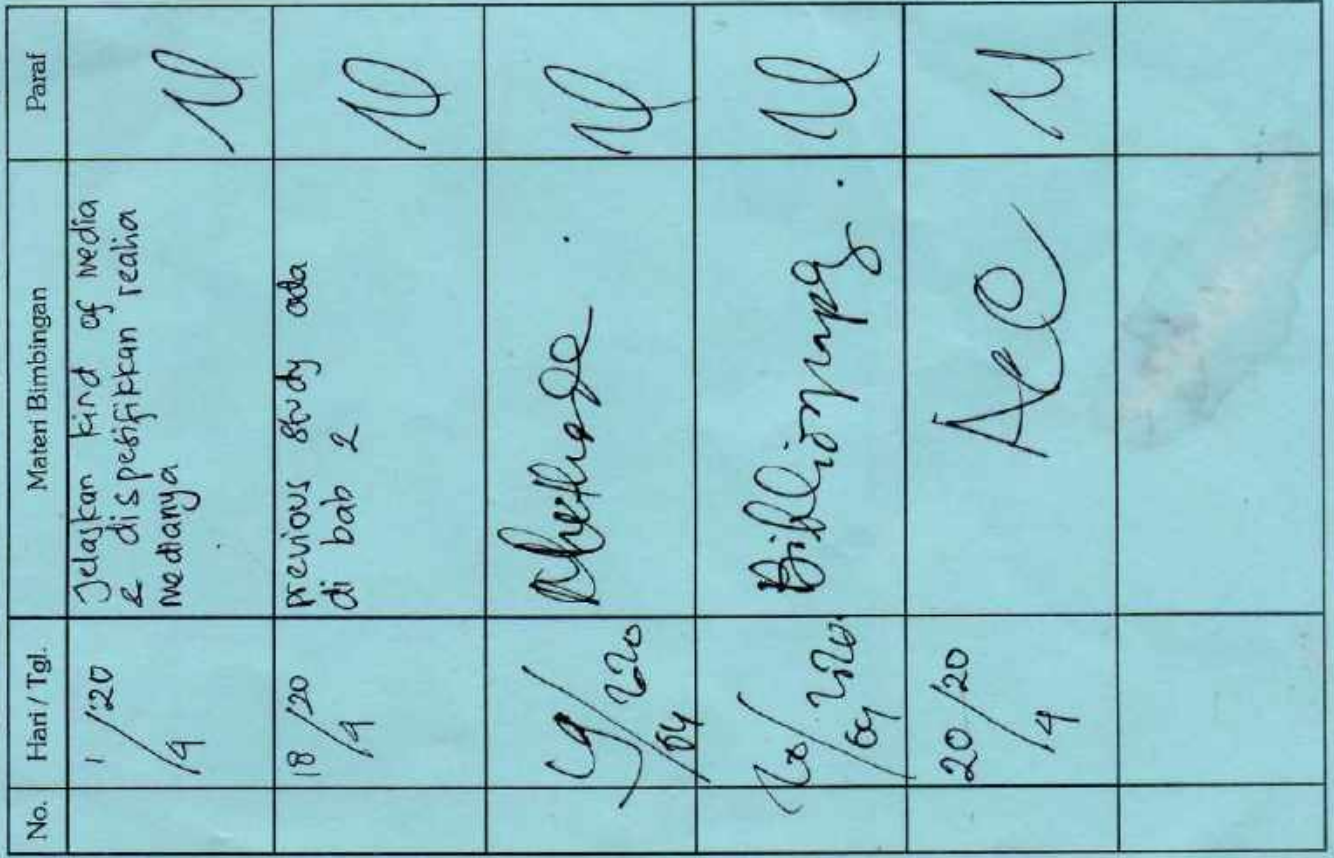 No. Hari / Tgl. Materi Bimbingan Paraf
1/4 '20 Jelaskan kind of media
& dispesifikkan realia
medianya
18/4 '20 previous study ada
di bab 2
19/04 2020
20/04 2020 Bibliography.
20/4 /20 ACC